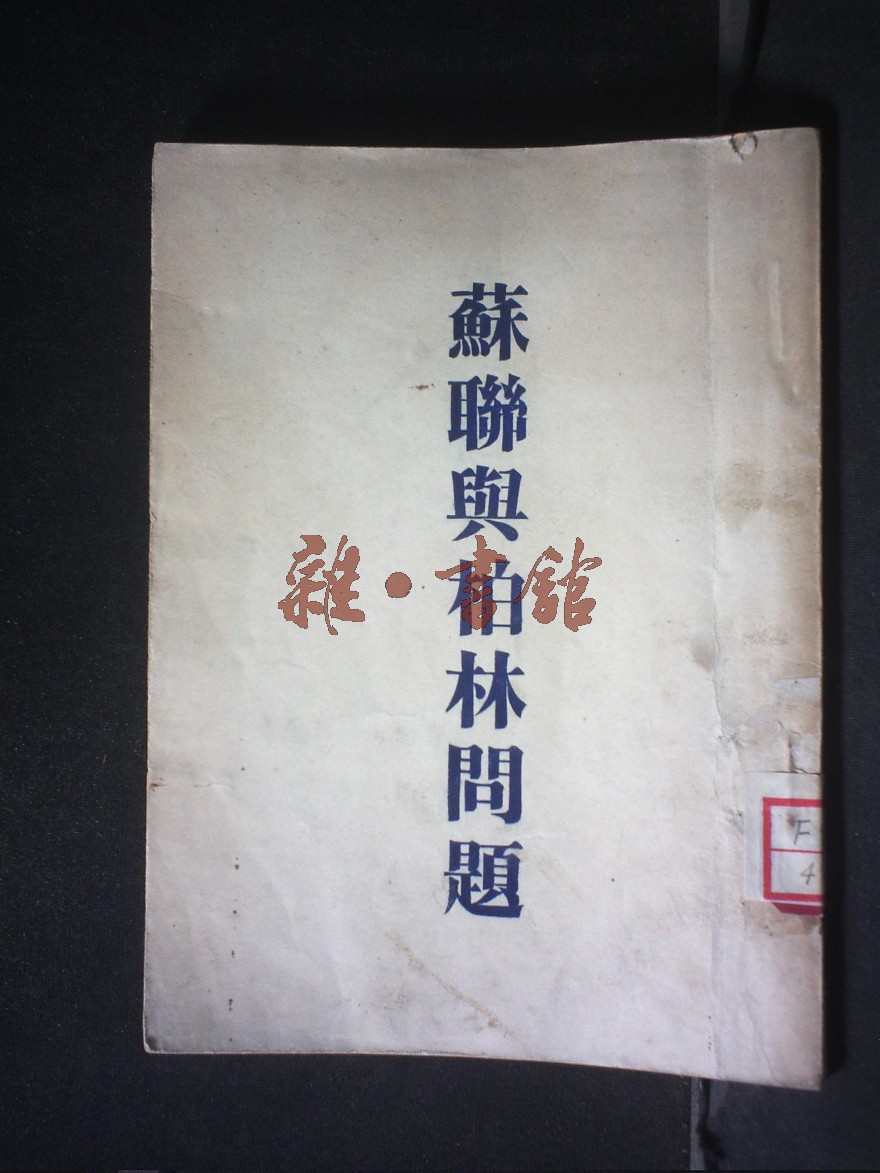 蘇聯與柏林問題
雜·書館
F
4